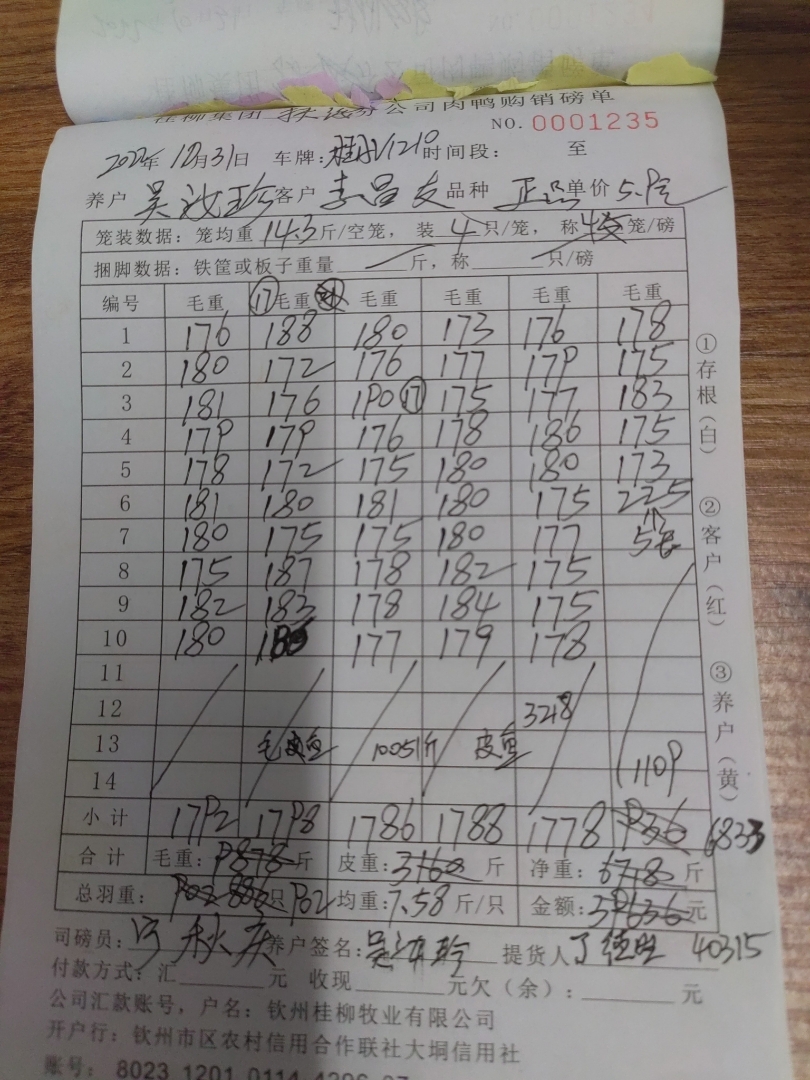 桂柳集团 分公司肉鸭购销磅单
NO. 0001235
2022年 12月31日 车牌: 1210 时间段: 至
养户 吴汝珍 客户 李吕友 品种 正品 单价 5.9元
笼装数据: 笼均重 14.3 斤/空笼, 装 4 只/笼, 称 笼/磅
捆脚数据: 铁筐或板子重量 斤, 称 只/磅
编号 毛重 ⑰ 毛重 毛重 毛重 毛重 毛重
1 176 188 180 173 176 178
2 180 172 176 177 179 175
3 181 176 190 ⑰ 175 177 183
4 179 179 176 178 186 175
5 178 172 175 180 180 173
6 181 180 181 180 175 225
7 180 175 175 180 177 5笼
8 175 187 178 182 175
9 182 183 178 184 175
10 180 177 179 178
11
12 3248
13 毛重 10051斤 皮重 1109
14
小计 1792 1798 1786 1788 1778 936 6833
合计 毛重: 9878 斤 皮重: 3160 斤 净重: 6718 斤
总羽重: 902 886 只 902 均重: 7.58 斤/只 金额: 39636 元
司磅员: 秋庆 养户签名: 吴汝珍 提货人 丁德旺 40315
付款方式: 汇 元 收现 元欠(余): 元
公司汇款账号, 户名: 钦州桂柳牧业有限公司
开户行: 钦州市区农村信用合作联社大垌信用社
账号: 8023 1201 0114
①存根(白) ②客户(红) ③养户(黄)